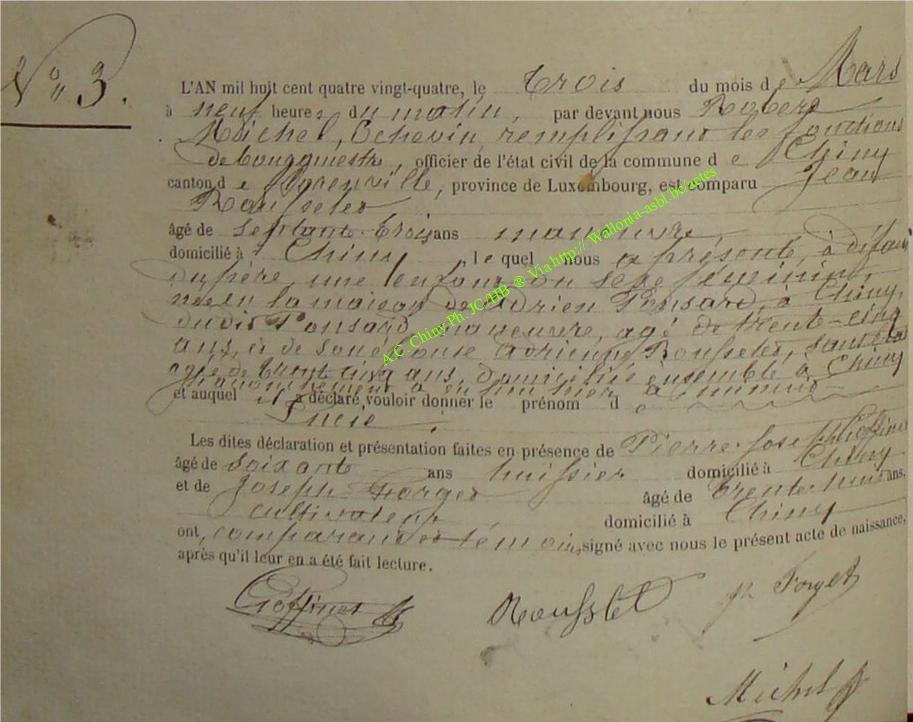 N° 3.
L'AN mil huit cent quatre vingt-quatre, le Trois du mois de Mars
à neuf heures du matin, par devant nous Robert
Michel, Echevin, remplissant les fonctions
de bourgmestre, officier de l'état civil de la commune de Chiny
canton de Florenville, province de Luxembourg, est comparu Jean
Rousselet
âgé de septante trois ans manœuvre
domicilié à Chiny, lequel nous a présenté, à défaut
du père, une enfant du sexe féminin,
née en la maison de Adrien Ponsard, à Chiny,
dudit Ponsard, manœuvre, agé de trente-cinq
ans, et de son épouse Adrienne Rousselet, sans état
agée de trente cinq ans, domiciliés ensemble à Chiny
l'accouchement a eu lieu hier à
et auquel il a déclaré vouloir donner le prénom de
Lucie.
Les dites déclaration et présentation faites en présence de Pierre-Joseph Goffinet
âgé de soixante ans huissier domicilié à Chiny
et de Joseph Forget âgé de trente huit ans.
cultivateur domicilié à Chiny
ont, comparant et témoins, signé avec nous le présent acte de naissance,
après qu'il leur en a été fait lecture.
Goffinet Rousslet Forget
Michel
A.C. Chiny Ph. JC/HB @ Via http://Wallonia-asbl.be/actes